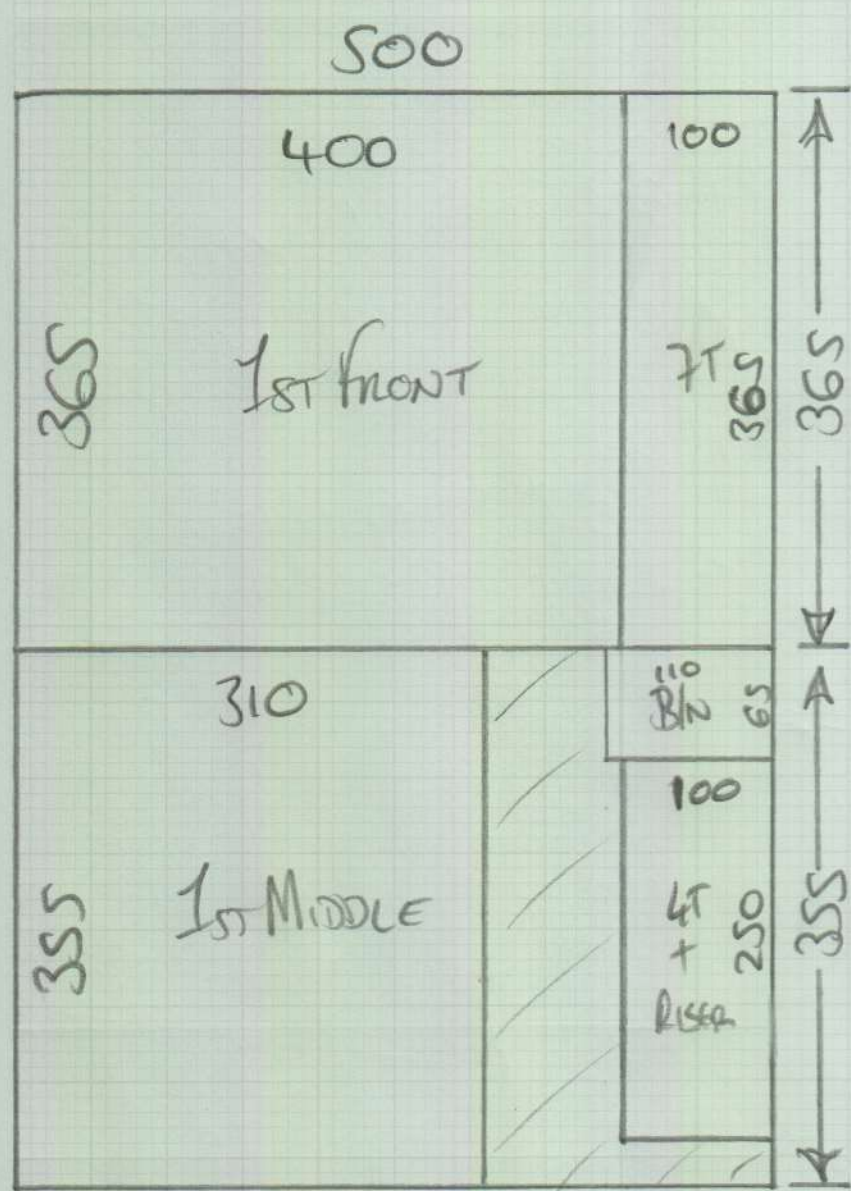 500
400
100
365
1ST FRONT
7T
365
365
310
110
B/N
65
100
355
1ST MIDDLE
4T
+
RISER
250
355